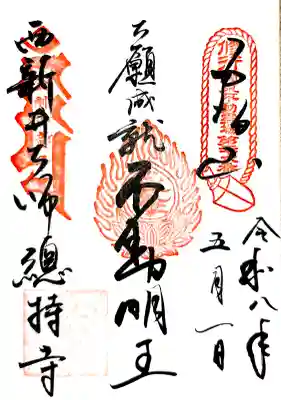 五智山
令和八年
五月一日
大願成就 不動明王
西新井大師 總持寺